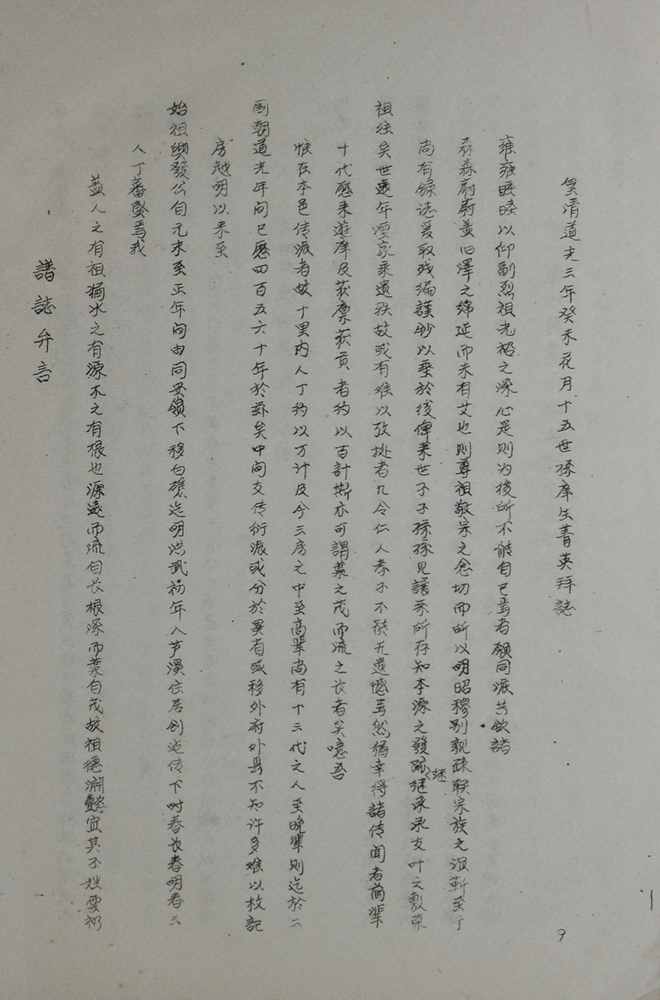 譜誌弁言
蓋人之有祖猶水之有源木之有根也源遠而流自长根深而葉自茂故祖德淵懿宜其子姓雲礽
人丁蕃盛焉我
始祖發公自元末至正年间由同安嶺下移白礁迄明洪武初年入芦溪住居创造传下时春长春明春三
房越明以来至
國朝道光年间已歷四百五六十年於茲矣中间支传衍派或分於異省或移外府外县不知许多难以枚記
惟在本邑传派者十里内人丁约以万计及今三房之中至高輩尚有十三代之人至晚輩则迄於二
十代歷来遊庠及获廪获贡者约以百計斯亦可謂葉之茂而流之长者矣噫吾
祖往矣世遠年湮家乘遺秩故或有难以攷拠者几令仁人孝子不禁无遗憾焉然猶幸得諸传聞者前輩
尚有録誌爰取残编謹钞以垂於後俾来世子子孫孫見譜系所存知本源之發继承支叶之敷荣
继
森森蔚蔚蓋旧澤之绵延而未有艾也则尊祖敬宗之念切而所以明昭穆别親疎联宗族之谊
雍雍睦睦以仰副烈祖光裕之深心是则为後所不能自已焉者願同派共欽諸
皇清道光三年癸未花月十五世孫庠生菁英拜誌
9